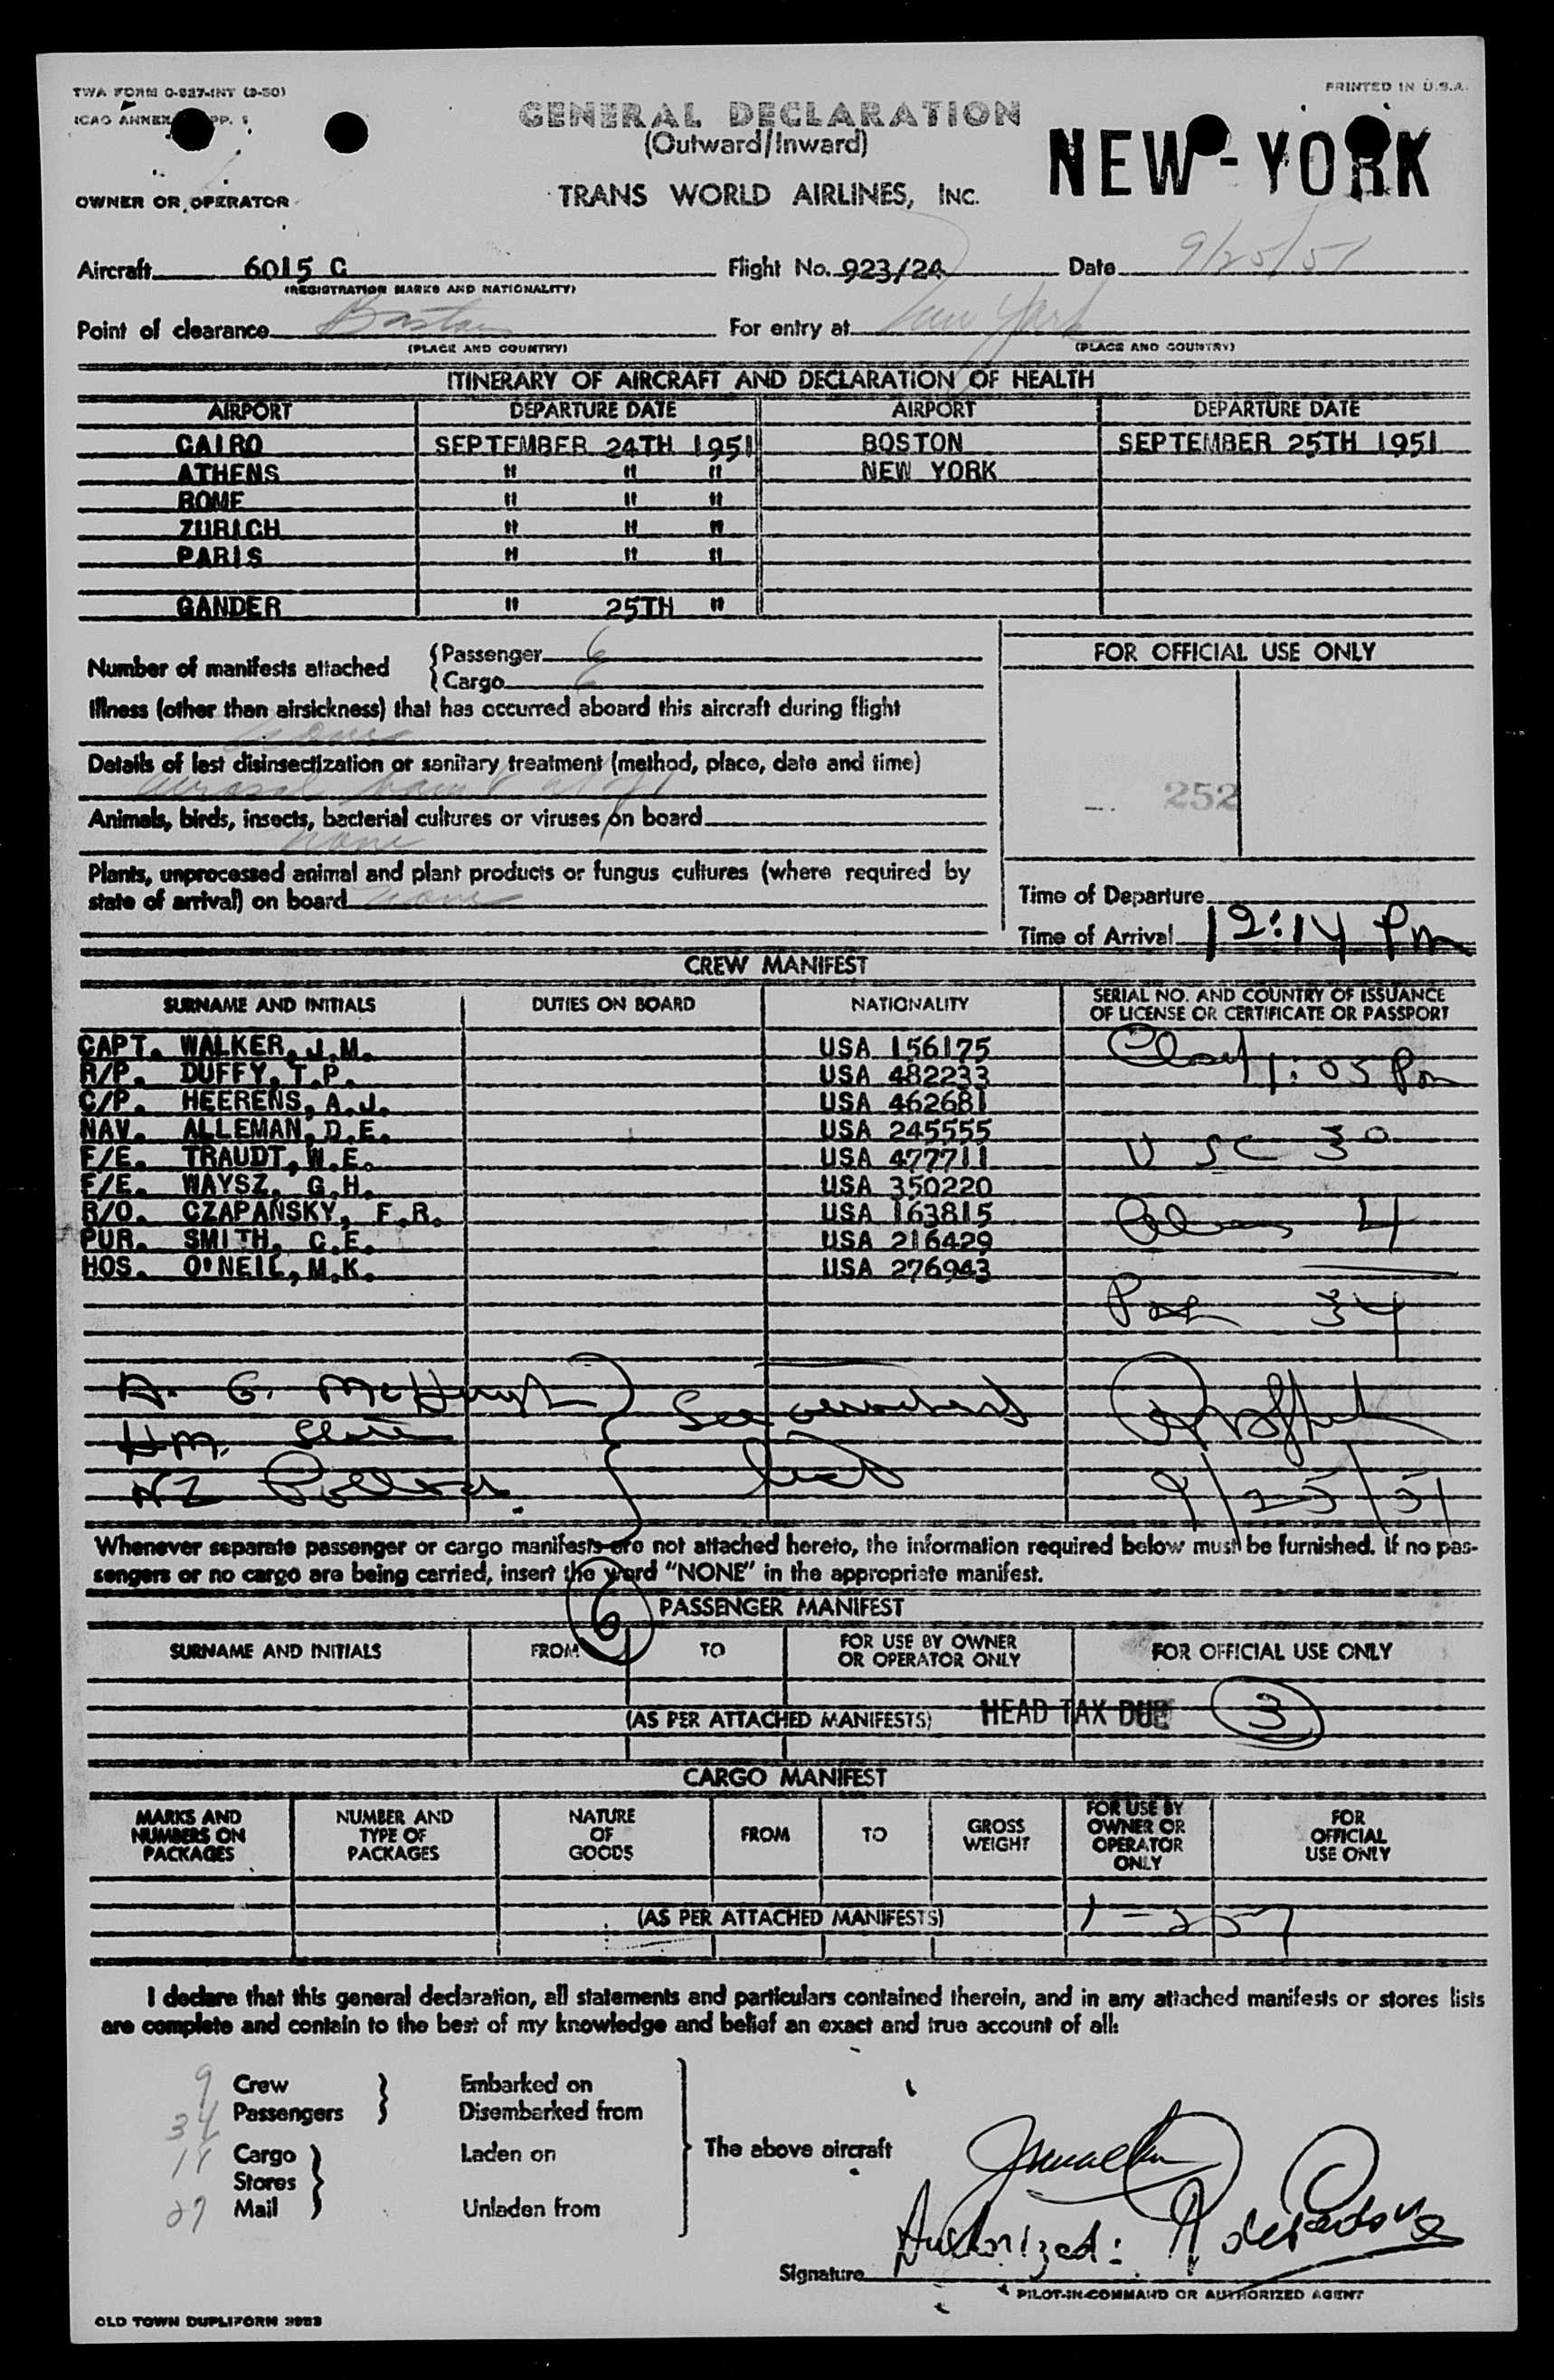 TWA FORM O-927-INT (9-50)
PRINTED IN U.S.A.
ICAO ANNEX PP. 1
GENERAL DECLARATION
(Outward/Inward)
NEW-YORK
OWNER OR OPERATOR
TRANS WORLD AIRLINES, INC.
Aircraft 6015 C Flight No. 923/24 Date 9/25/51
(REGISTRATION MARKS AND NATIONALITY)
Point of clearance Boston For entry at New York
(PLACE AND COUNTRY) (PLACE AND COUNTRY)
ITINERARY OF AIRCRAFT AND DECLARATION OF HEALTH
AIRPORT DEPARTURE DATE AIRPORT DEPARTURE DATE
CAIRO SEPTEMBER 24TH 1951 BOSTON SEPTEMBER 25TH 1951
ATHENS " " " NEW YORK
ROME " " "
ZURICH " " "
PARIS " " "
GANDER " 25TH "
Number of manifests attached { Passenger 6
{ Cargo 6
FOR OFFICIAL USE ONLY
Illness (other than airsickness) that has occurred aboard this aircraft during flight
none
Details of last disinsectization or sanitary treatment (method, place, date and time)
aerosol
252
Animals, birds, insects, bacterial cultures or viruses on board
none
Plants, unprocessed animal and plant products or fungus cultures (where required by
state of arrival) on board none
Time of Departure
Time of Arrival 12:14 Pm
CREW MANIFEST
SURNAME AND INITIALS DUTIES ON BOARD NATIONALITY SERIAL NO. AND COUNTRY OF ISSUANCE
OF LICENSE OR CERTIFICATE OR PASSPORT
CAPT. WALKER, J.M. USA 156175
R/P. DUFFY, T.P. USA 482233 1:05 Pm
C/P. HEERENS, A.J. USA 462681
NAV. ALLEMAN, D.E. USA 245555 USC 30
F/E. TRAUDT, W.E. USA 477711
F/E. WAYSZ, G.H. USA 350220
R/O. CZAPANSKY, F.R. USA 163815 Aliens 4
PUR. SMITH, C.E. USA 216429
HOS. O'NEIL, M.K. USA 276943
Pax 34
A. G. McHugh } See
H.M.
9/25/51
Whenever separate passenger or cargo manifests are not attached hereto, the information required below must be furnished. If no pas-
sengers or no cargo are being carried, insert the word "NONE" in the appropriate manifest.
6 PASSENGER MANIFEST
SURNAME AND INITIALS FROM TO FOR USE BY OWNER OR OPERATOR ONLY FOR OFFICIAL USE ONLY
(AS PER ATTACHED MANIFESTS) HEAD TAX DUE 3
CARGO MANIFEST
MARKS AND NUMBERS ON PACKAGES NUMBER AND TYPE OF PACKAGES NATURE OF GOODS FROM TO GROSS WEIGHT FOR USE BY OWNER OR OPERATOR ONLY FOR OFFICIAL USE ONLY
(AS PER ATTACHED MANIFESTS)
I declare that this general declaration, all statements and particulars contained therein, and in any attached manifests or stores lists
are complete and contain to the best of my knowledge and belief an exact and true account of all:
9 Crew } Embarked on
34 Passengers } Disembarked from
Cargo } Laden on The above aircraft
Stores
27 Mail } Unladen from
Authorized:
Signature
PILOT-IN-COMMAND OR AUTHORIZED AGENT
OLD TOWN DUPLIFORM